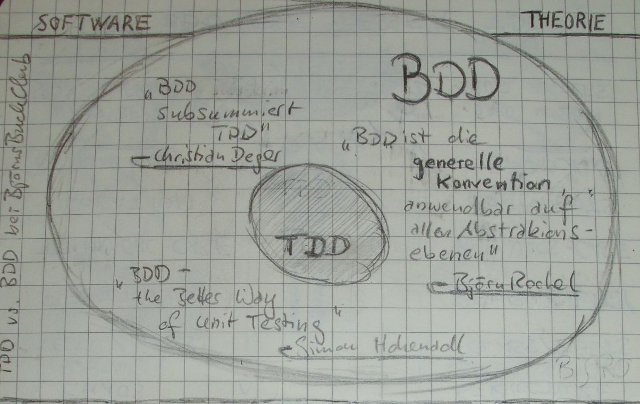 SOFTWARE
THEORIE
TDD vs. BDD bei BjörnsBuchClub
BDD
„BDD
subsummiert
TDD"
– Christian Deger
„BDD ist die
generelle
Konvention,
anwendbar auf
allen Abstraktions-
ebenen"
– Björn Rochel
TDD
„BDD –
the Better Way
of Unit Testing"
– Simon